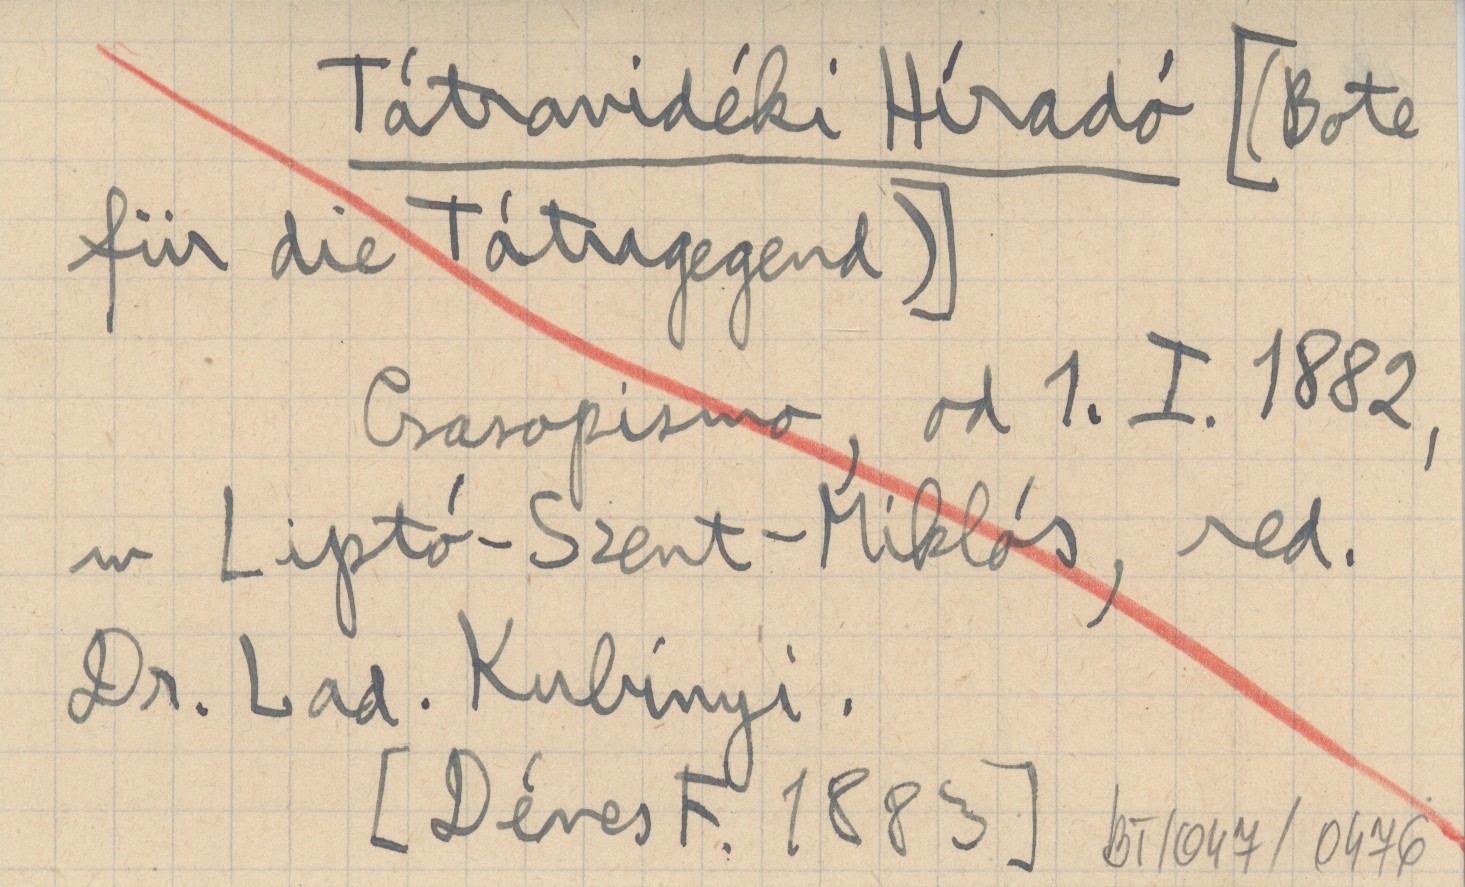 Tátravidéki Híradó [(Bote
für die Tátragegend)]
Czasopismo, od 1. I. 1882,
w Liptó-Szent-Miklós, red.
Dr. Lad. Kubinyi.
[Dénes F. 1883]
BT/047/0476